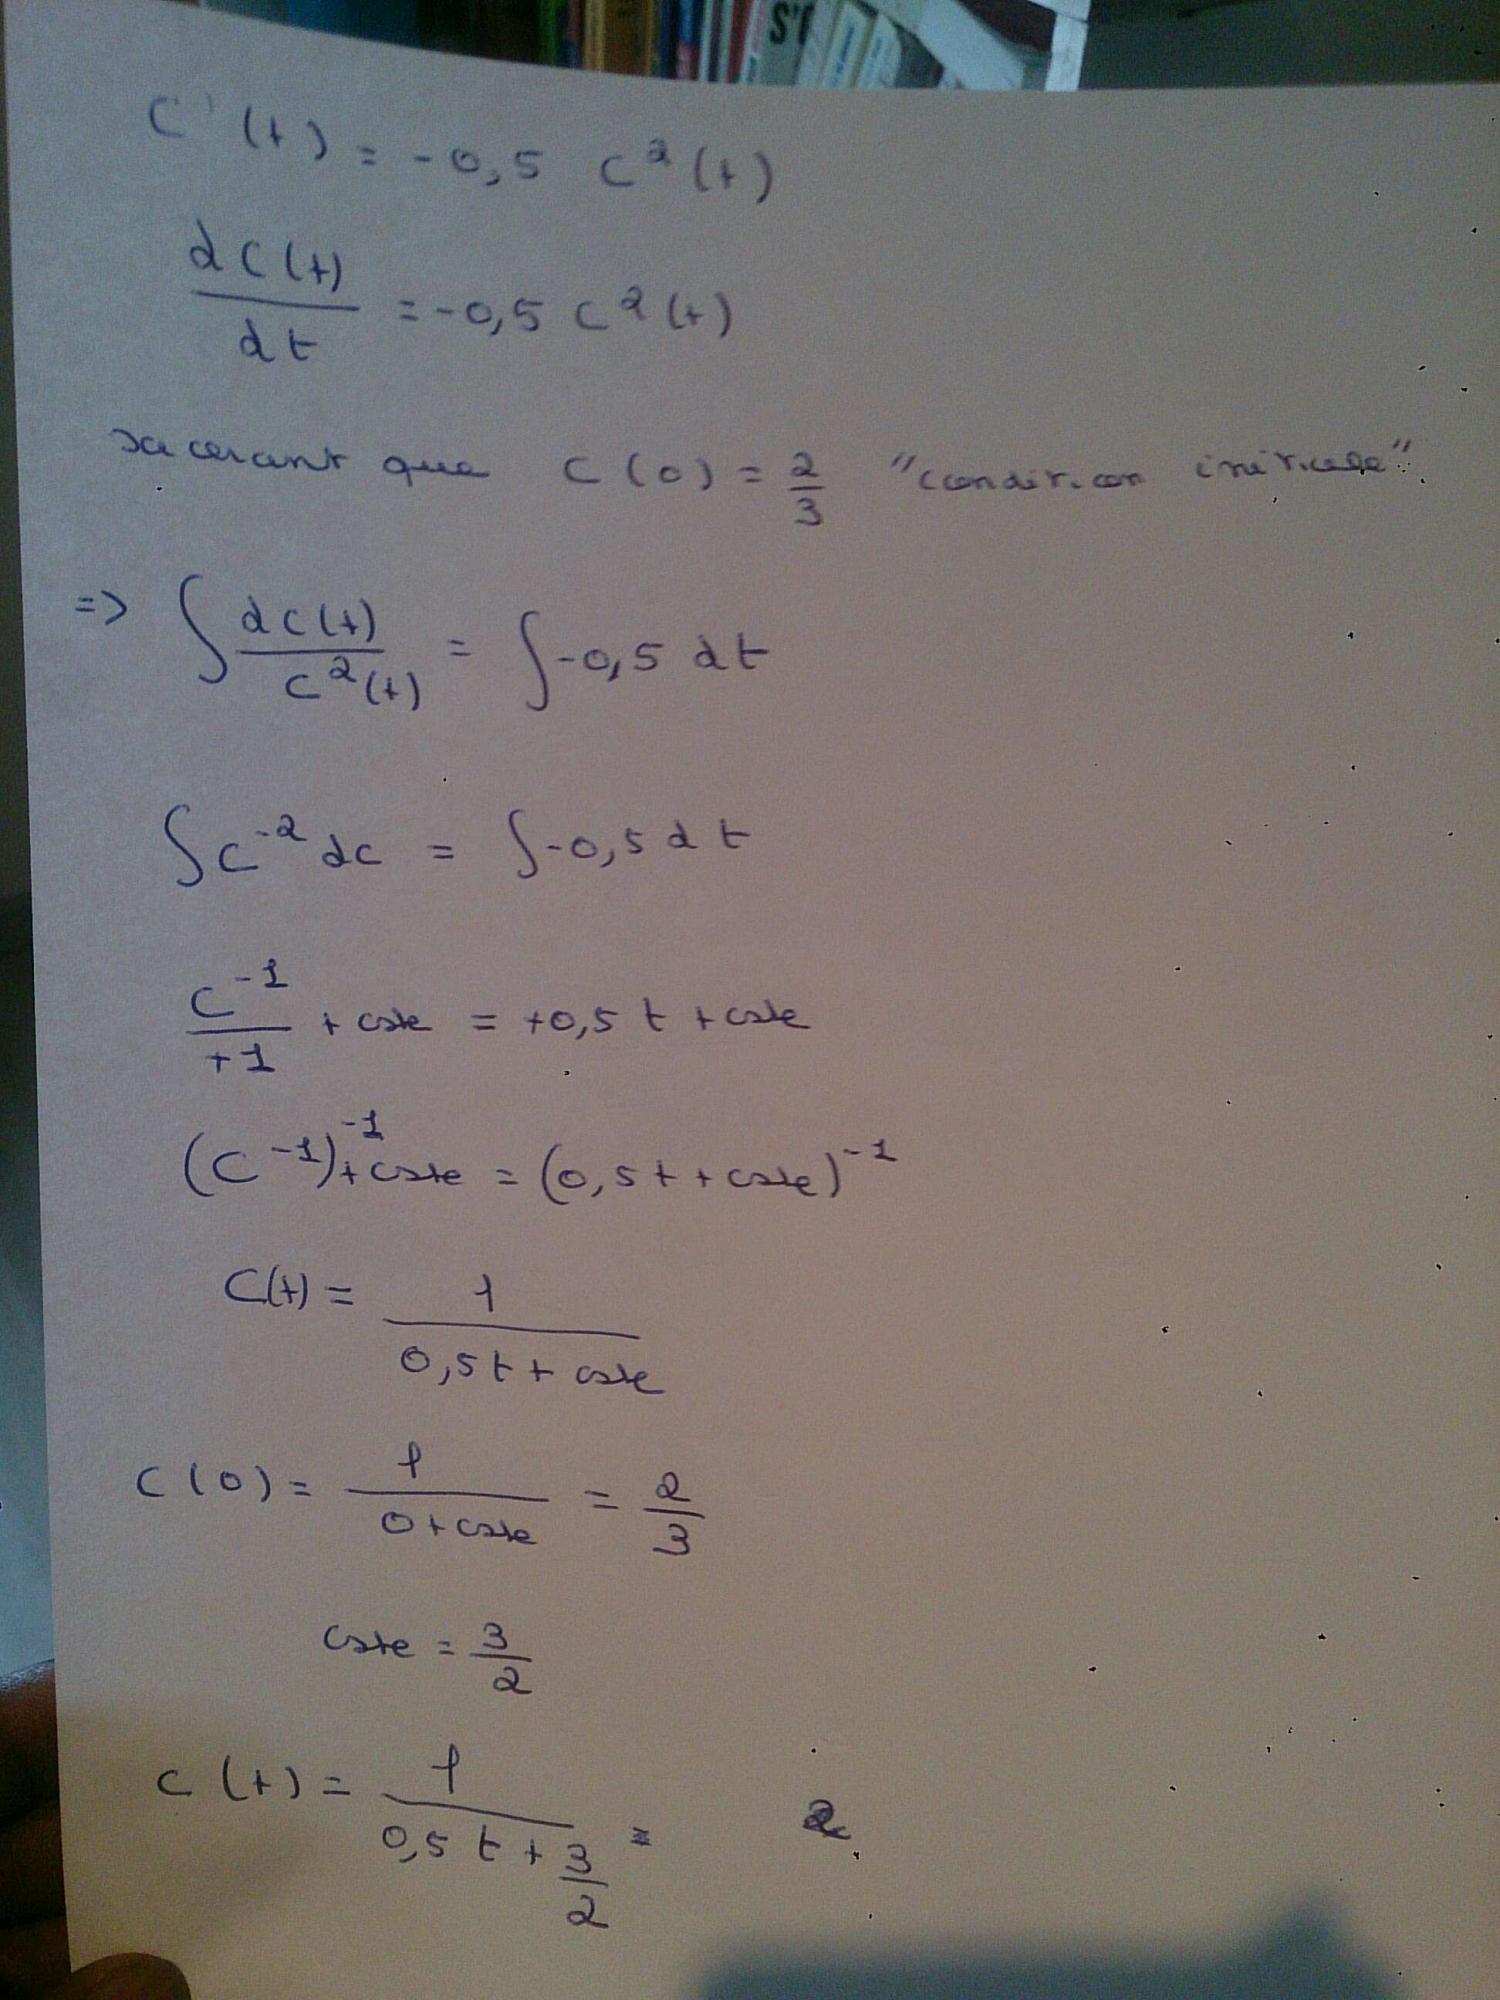 S'
C'(t) = -0,5 C²(t)
dC(t)/dt = -0,5 C²(t)
sacerant que C(0) = 2/3 "condition initiale".
=> ∫ dC(t)/C²(t) = ∫ -0,5 dt
∫ C⁻² dC = ∫ -0,5 dt
C⁻¹/+1 + cste = +0,5 t + cste
(C⁻¹)⁻¹ + cste = (0,5 t + cste)⁻¹
C(t) = 1/(0,5 t + cste)
C(0) = 1/(0 + cste) = 2/3
cste = 3/2
C(t) = 1/(0,5 t + 3/2) = 2